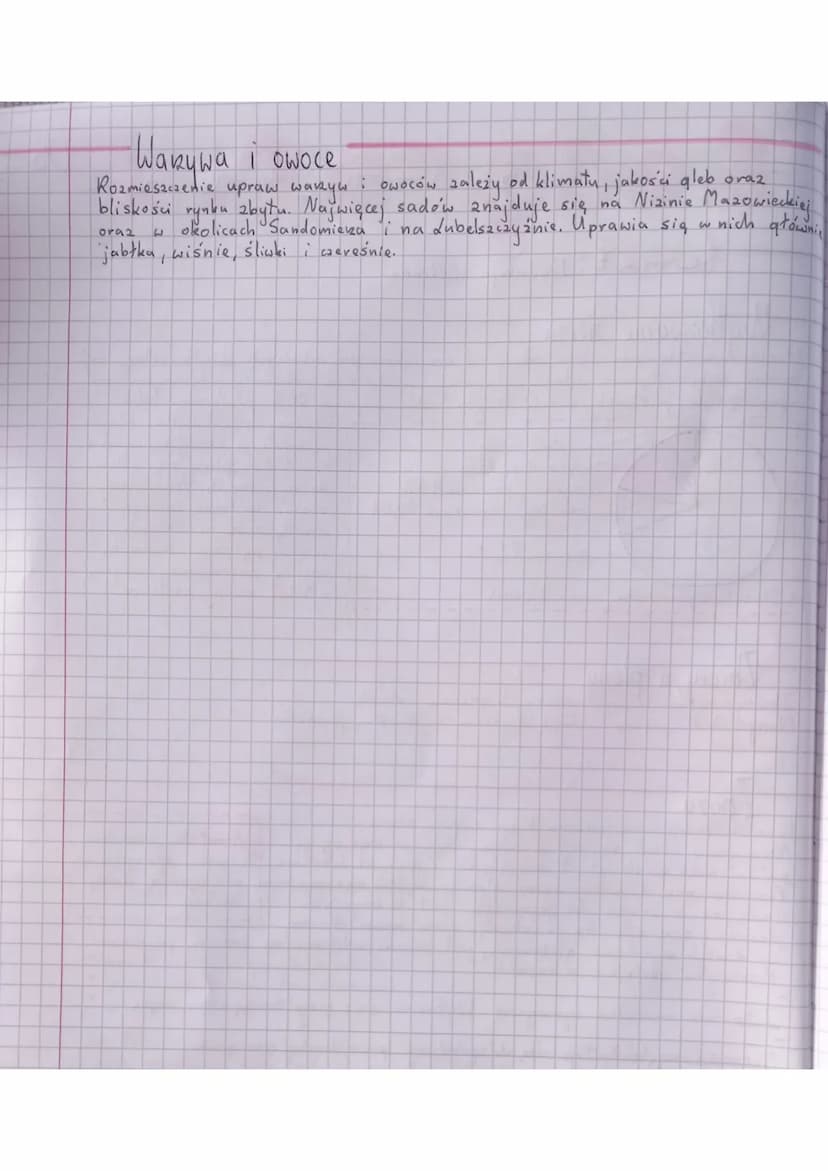 Warzywa i owoce
Rozmieszczenie upraw warzyw i owoców zależy od klimatu, jakości gleb oraz
bliskości rynku zbytu. Najwięcej sadów znajduje się na Nizinie Mazowieckiej
oraz w okolicach Sandomierza i na Lubelszczyźnie. Uprawia się w nich główni
jabłka, wiśnie, śliwki i czereśnie.